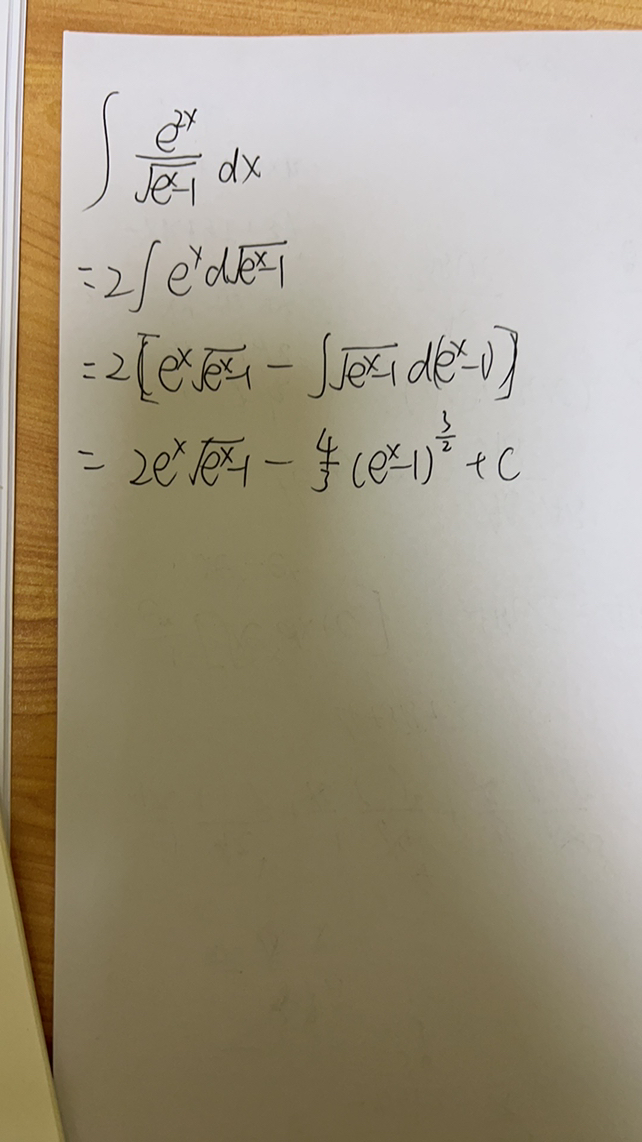 ∫ e^{2x}/√(e^x-1) dx
= 2∫ e^x d√(e^x-1)
= 2[e^x√(e^x-1) - ∫√(e^x-1) d(e^x-1)]
= 2e^x√(e^x-1) - 4/3 (e^x-1)^{3/2} + C